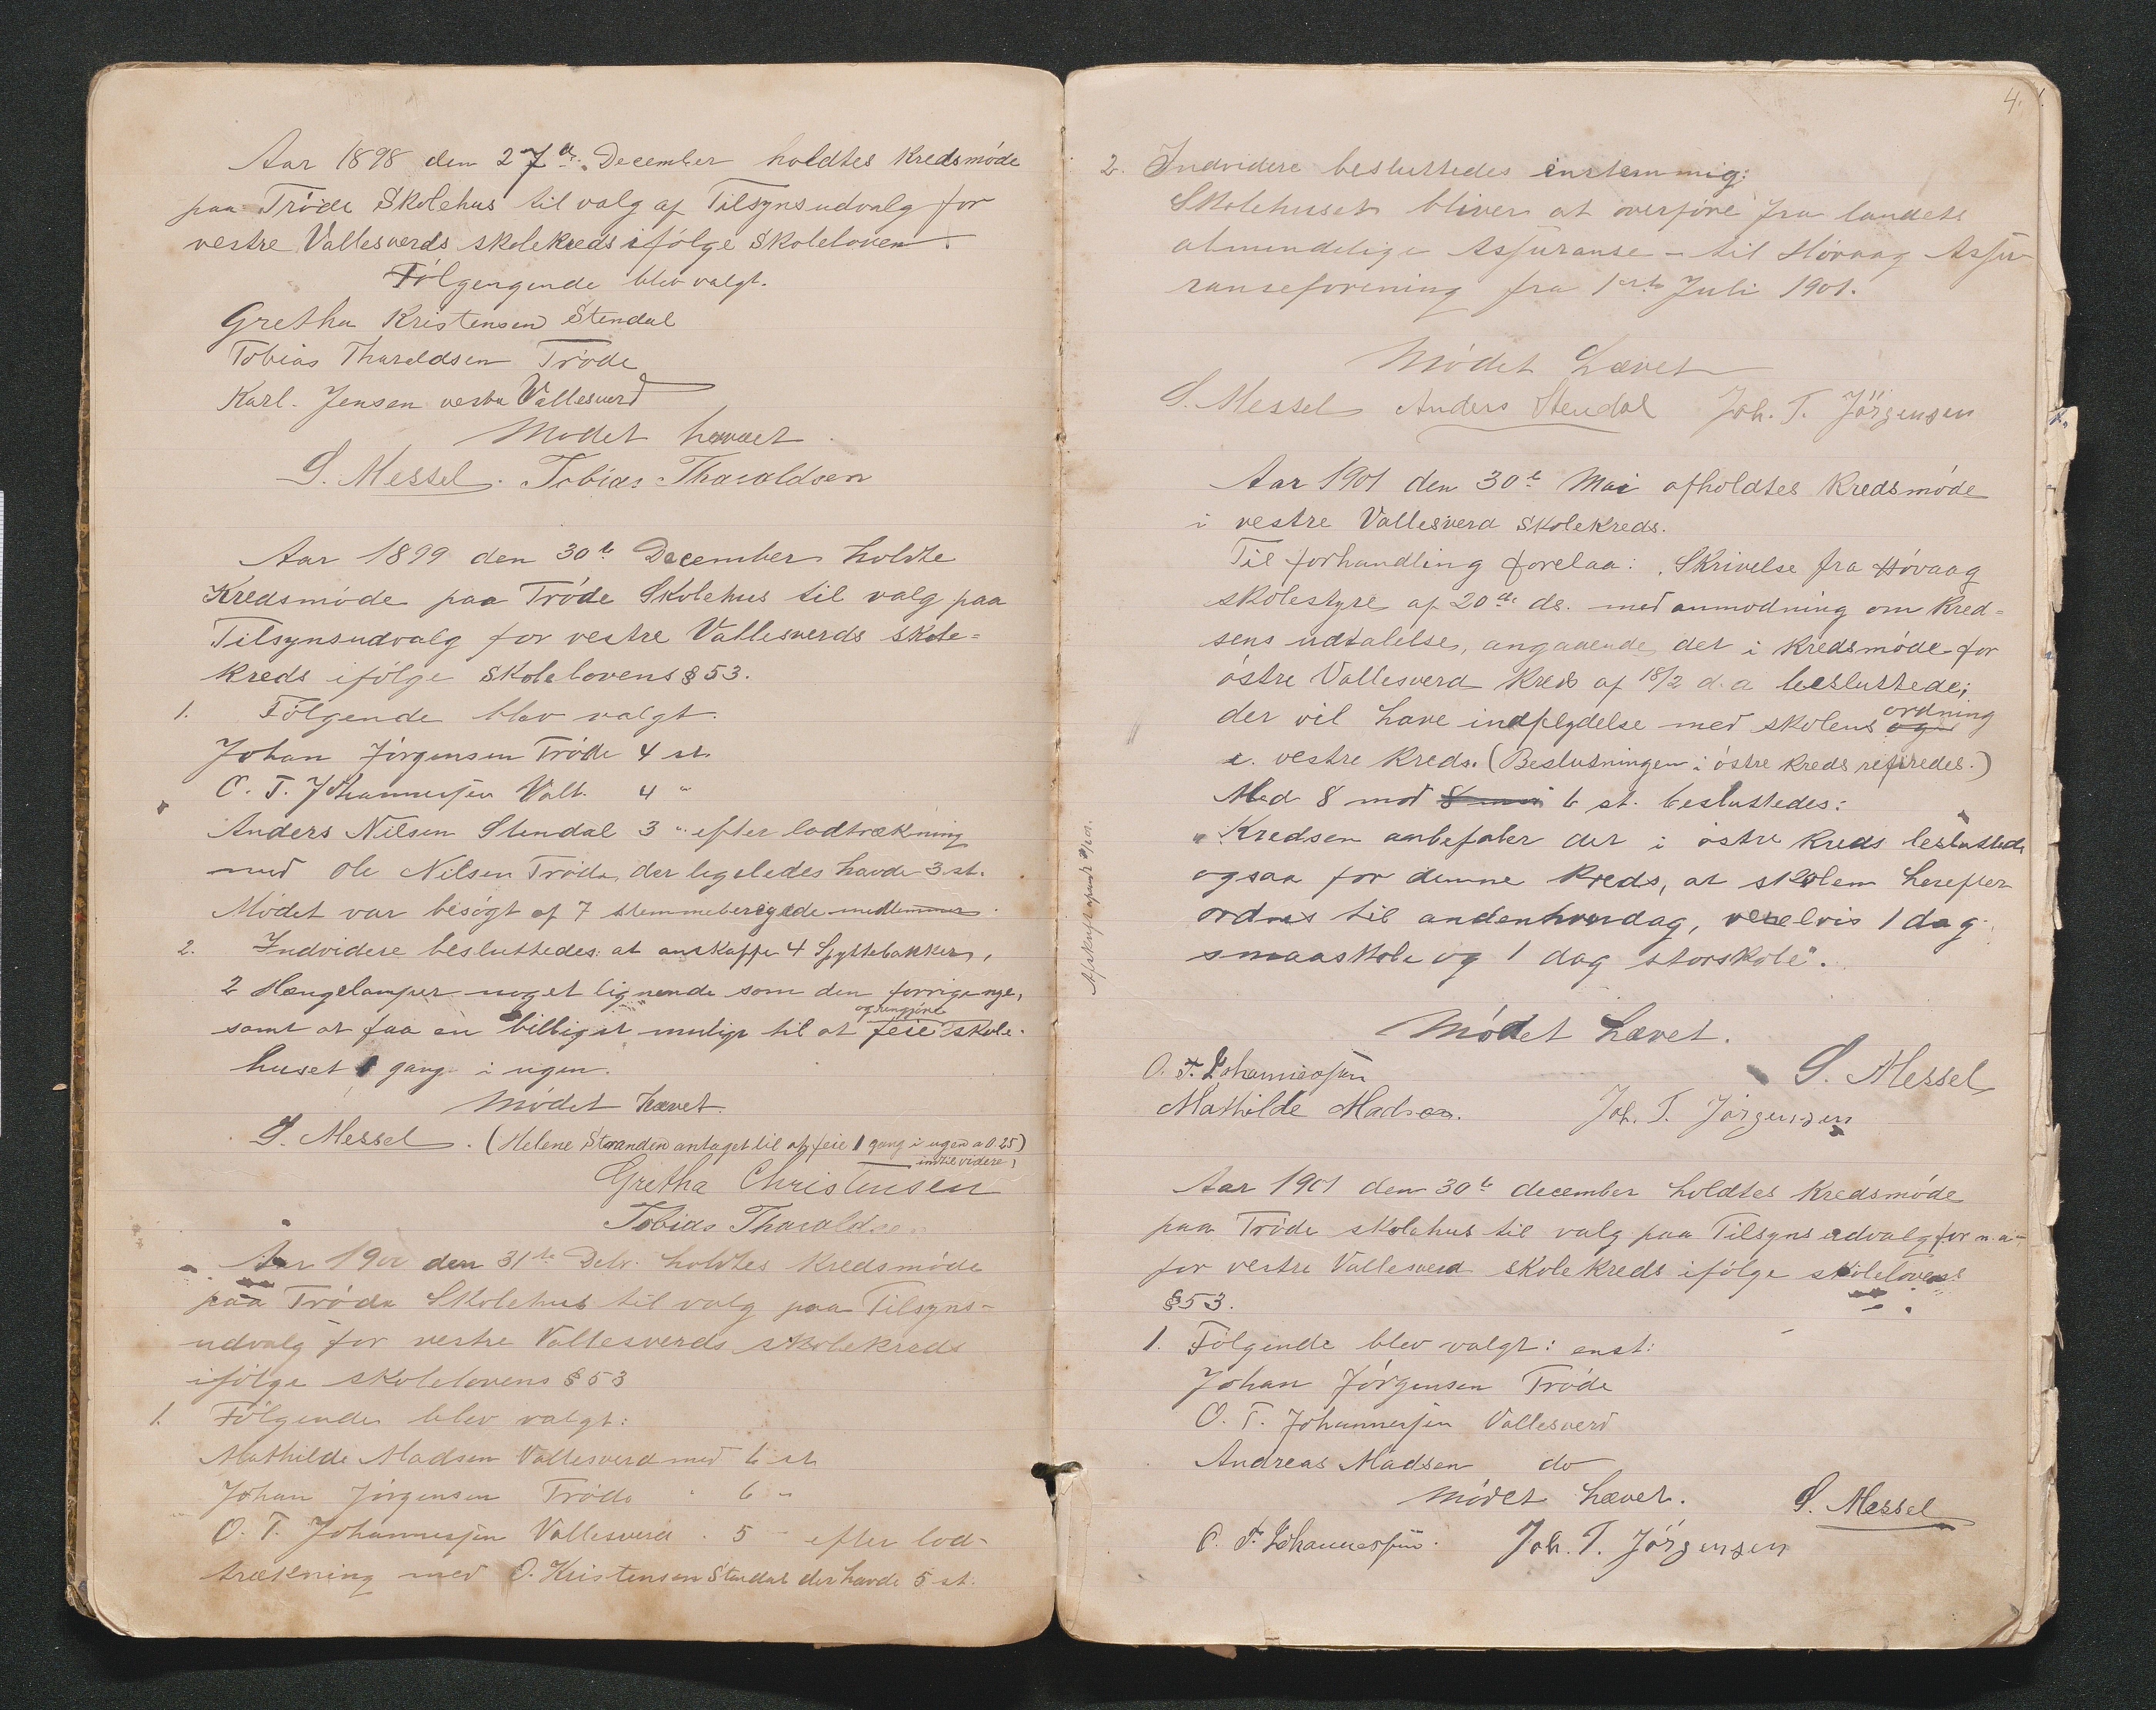 Aar 1898 den 27de December holdtes Kredsmøde
paa Trøde Skolehus til valg af Tilsynsudvalg for
vestre Vallesverds skolekreds ifølge Skoleloven.
Følgengende blev valgt.
Gretha Kristensen Stendal
Tobias Tharaldsen Trøde
Karl. Jensen vestre Vallesverd
Mødet hævet.
S. Messel. Tobias Tharaldsen
Aar 1899 den 30te December holdte
Kredsmøde paa Trøde Skolehus til valg paa
Tilsynsudvalg for vestre Vallesverds skole=
kreds ifølge Skolelovens § 53.
1. Følgende blev valgt.
Johan Jørgensen Trøde 4 st.
O. T. Johannessen Vall. 4 "
Anders Nilsen Stendal 3 " efter lodtrækning
med Ole Nilsen Trøde, der legeledes havde 3 st.
Mødet var besøgt af 7 stemmeberigede medlemmer.
2. Indvidere besluttedes: at anskaffe 4 Spyttebakker,
2 Hængelamper noget lignende som den forrige nye,
og rengjøre
samt at faa en billigst muligt til at feie skole-
huset 1 gang i ugen.
Mødet hævet.
S. Messel. (Helene Stranden antaget til at feie 1 gang i ugen a 0.25)
indtil videre,
Gretha Christensen
Tobias Tharaldsen
Aar 1900 den 31te Debr. holdtes Kredsmøde
paa Trøde Skolehus til valg paa Tilsyns-
udvalg for vestre Vallesverds skolekreds
ifølge skolelovens § 53
1. Følgende blev valgt:
Mathilde Madsen Vallesverd med 6 st.
Johan Jørgensen Trøde " 6 "
O. T. Johannessen Vallesverd " 5 " efter lod-
trækning med O. Kristensen Stendal der havde 5 st.
4.
2. Indvidere besluttedes enstemmig:
Skolehuset bliver at overføre fra landets
almindelige Assuranse - til Høvaag Assu-
ranseforening fra 1ste Juli 1901.
Mødet hævet
S. Messel Anders Stendal Joh. T. Jörgensen
Aar 1901 den 30te Mai afholdtes Kredsmøde
i vestre Vallesverd Skolekreds.
Til forhandling forelaa: Skrivelse fra Høvaag
skolestyre af 20de ds. med anmodning om Kred=
sens udtalelse, angaaende det i Kredsmøde for
østre Vallesverd Kreds af 18/2 d. a besluttede;
ordning
der vil have indflydelse med skolens og
i vestre Kreds. (Beslutningen i østre Kreds refiredes.)
Med 8 mod 8 mod 6 st. besluttedes:
"Kredsen anbefaler det i østre Kreds besluttede
ogsaa for denne Kreds, at skolen herefter
ordnes til andenhverdag, vexelvis 1 dag
smaaskole og 1 dag storskole".
Mødet hævet.
O. T. Johannessen S. Messel
Mathilde Madsen. Joh. T. Jörgensen
Aar 1901 den 30te december holdtes Kredsmøde
paa Trøde skolehus til valg paa Tilsynsudvalg for n. a-
for vestre Vallesverd skolekreds ifølge skolelovens
§ 53.
1. Følgende blev valgt: enst:
Johan Jørgensen Trøde
O. T. Johannessen Vallesverd
Andreas Madsen do
Mødet hævet. S. Messel
O. T. Johannessen. Joh. T. Jörgensen